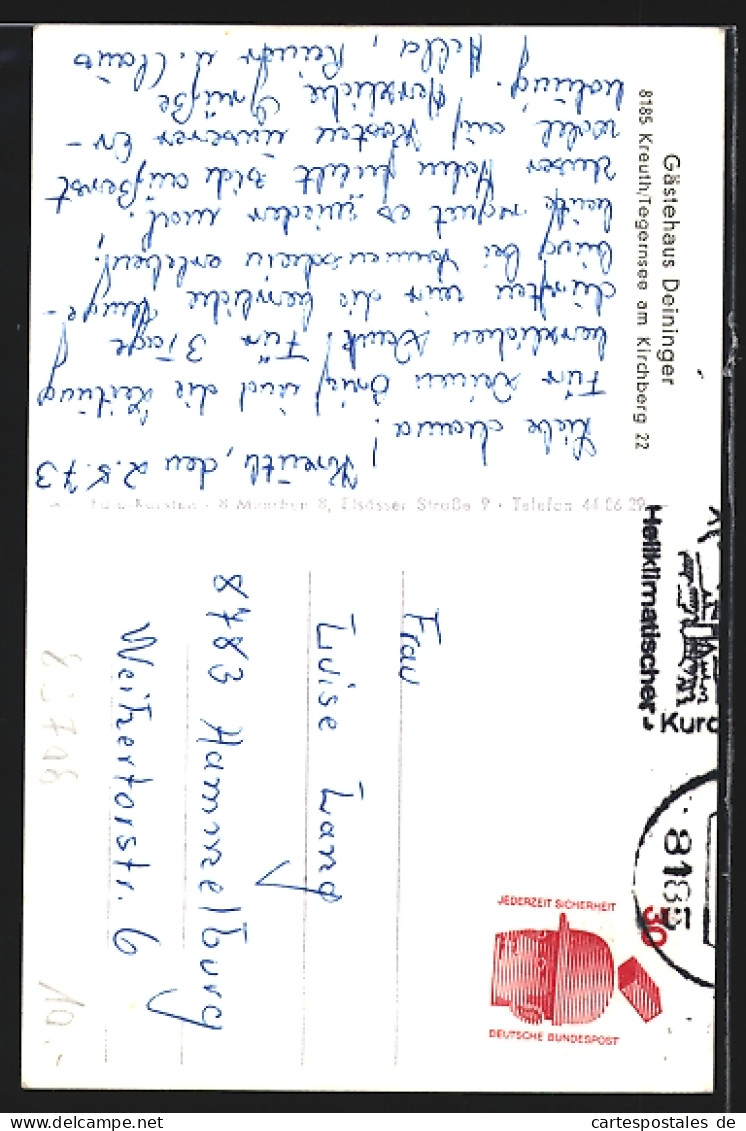 Gästehaus Deininger
8185 Kreuth/Tegernsee am Kirchberg 22
Kreuth, den 2.5.73
Liebe Mama!
Für Deinen Brief und die Zeitung
herzlichen Dank! Für 3 Tage
dürften wir die herrliche Umge-
bung bei Sonnenschein erleben!
heute regnet es wieder mal.
Unser Helm fühlt sich äußerst
wohl, auf Kosten unserer Er-
holung. Herzliche Grüße
Hella, Reiner u. Claus
Karsten · 8 München 8, Elsässer Straße 9 · Telefon 44 06 29
Heilklimatischer-
Kuro
8185
30
JEDERZEIT SICHERHEIT
DEUTSCHE BUNDESPOST
Frau
Luise Lang
8783 Hammelburg
Weihertorstr. 6
10.-
cartespostales de